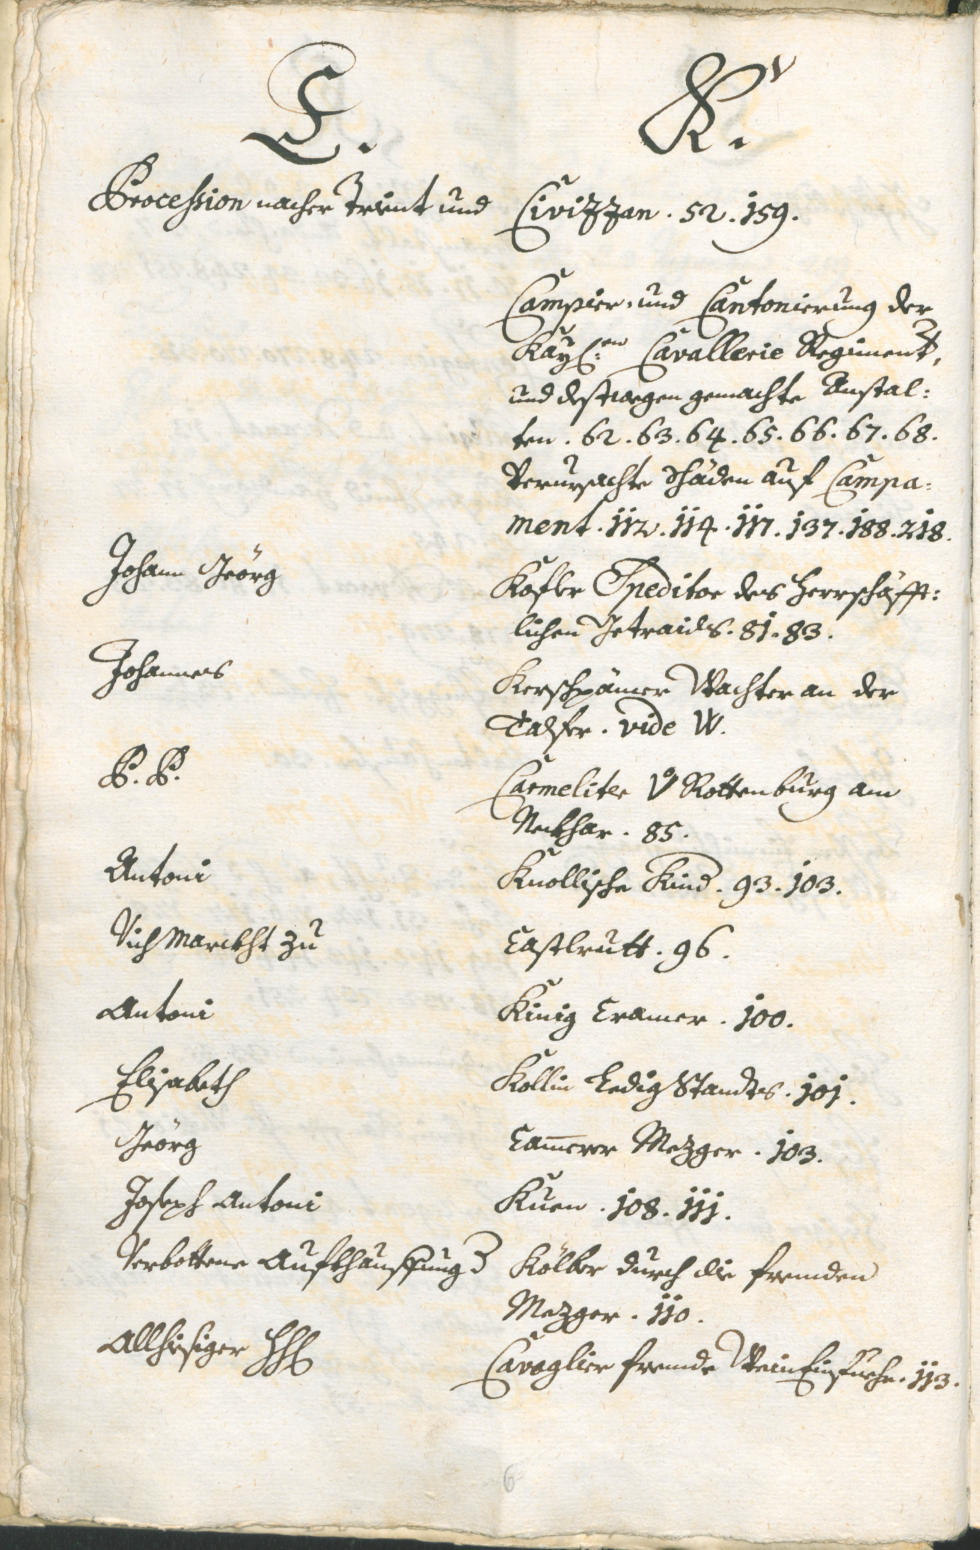 C. K.
Procession nacher Trient und Civizzan. 52. 159.
Campier: und Cantonierung der
Kayl:en Cavallerie Regiment,
und destwegen gemachte Anstal:
ten. 62. 63. 64. 65. 66. 67. 68.
Verursachte Schäden auf Campa:
ment. 112. 114. 117. 137. 188. 218.
Johann Jeörg Kofler Speditor des Herrschäfft:
lichen Getraids. 81. 83.
Johannes Kerschpämer Wachter an der
Talfer. vide W.
P. P. Carmeliter v Rottenburg am
Neckhar. 85.
Antoni Knollische Kind. 93. 103.
Vich Marckht zu Castlrutt. 96.
Antoni Kinig Cramer. 100.
Elisabeth Kollin Ledig Standts. 101.
Jeörg Camerer Mezger. 103.
Joseph Antoni Kuen. 108. 111.
Verbottene Aufkhauffung d Kölber durch die fremden
Mezger. 110.
Allhiesiger HH Cavaglier fremde Wein Einfuehr. 113.
6